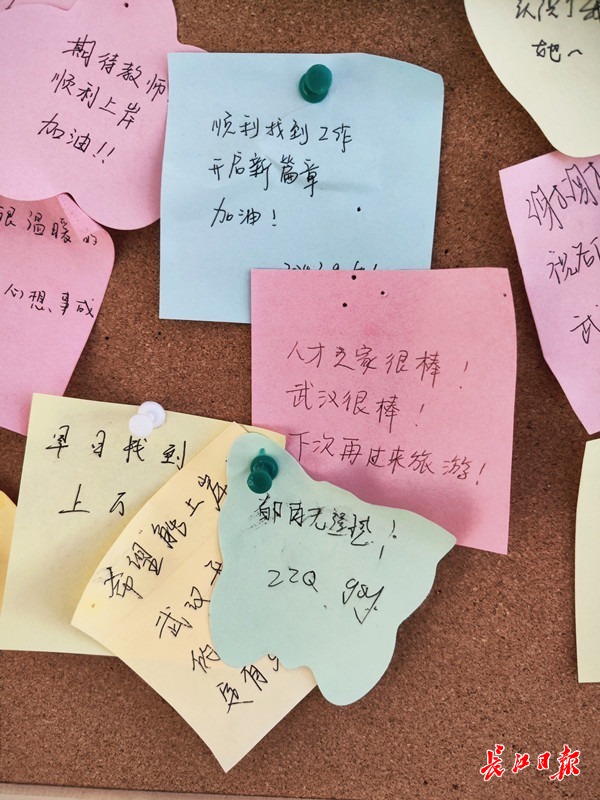 期待教师
顺利上岸
加油!!
顺利找到工作
开启新篇章
加油!
认识了
她~
很温暖的
心想事成
谢谢
祝君
武
人才之家很棒!
武汉很棒!
下次再过来旅游!
早日找到
上万
希望能上岸
武汉
的
更有
ZZQ
长江日报